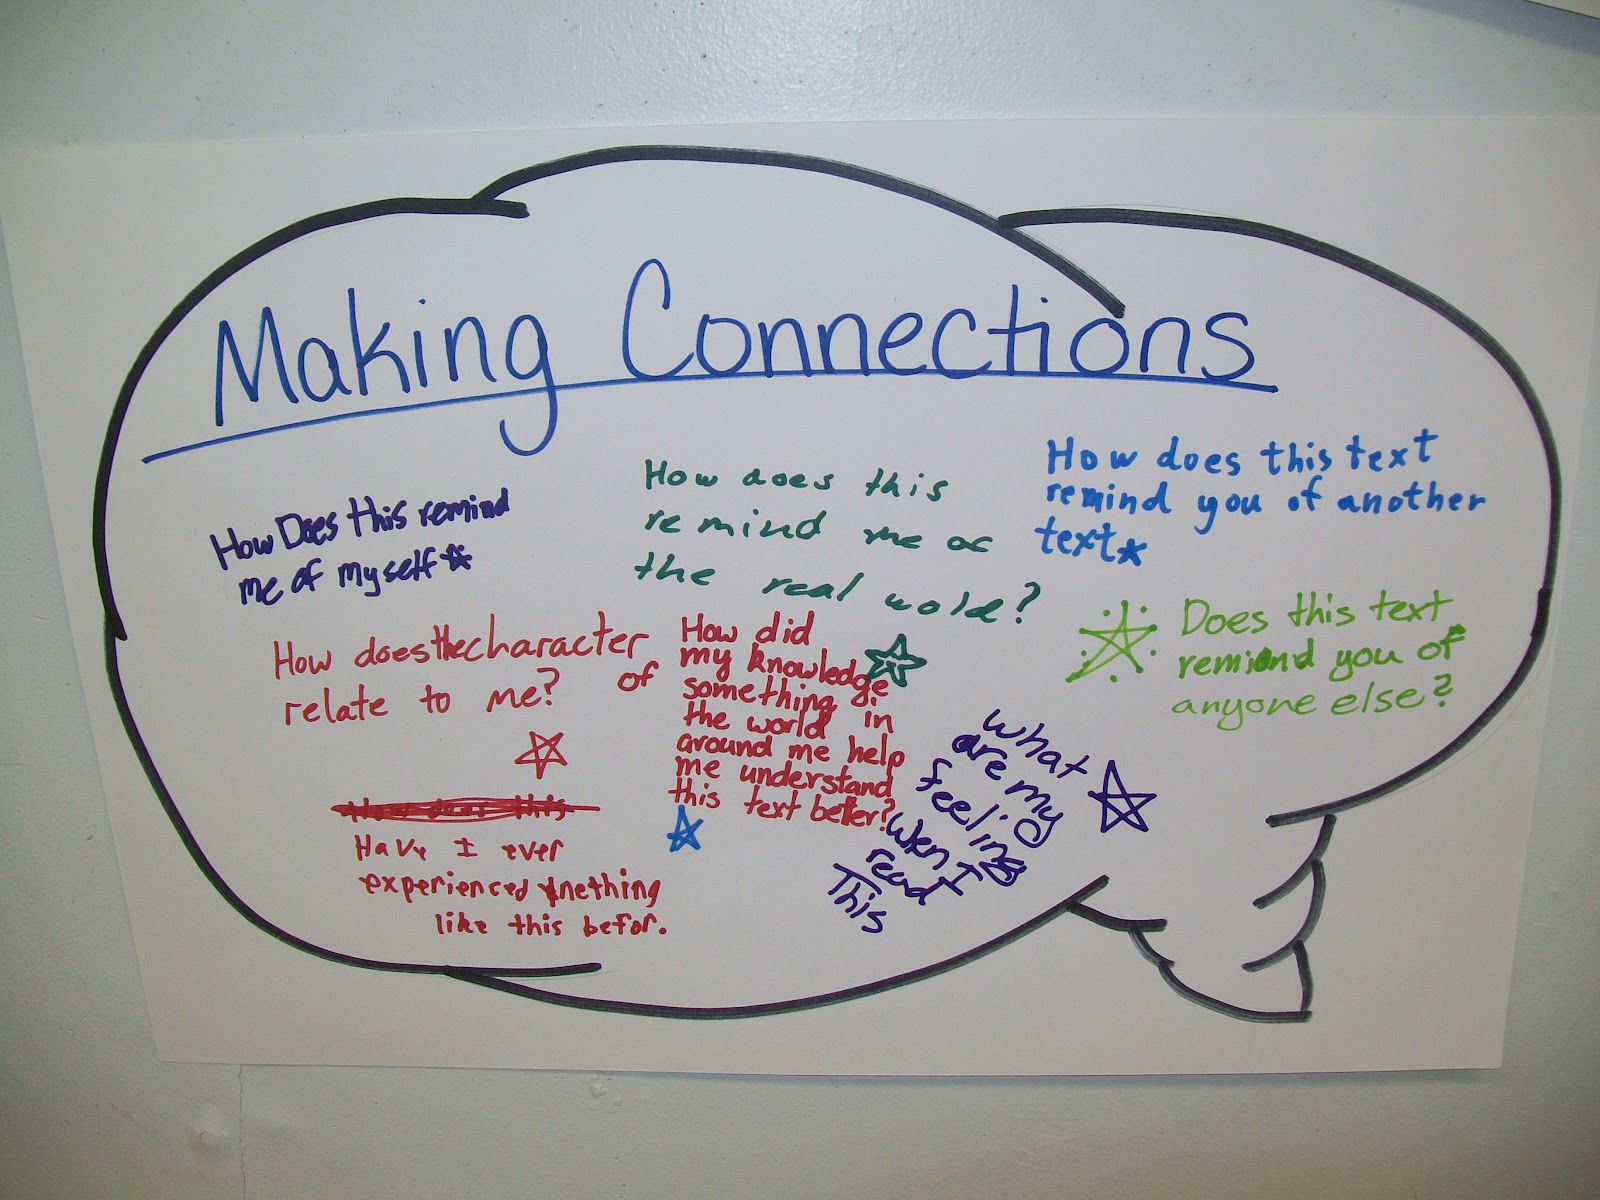 Making Connections
How Does this remind
me of myself
How does this
remind me of
the real wold?
How does this text
remind you of another
text
How does the character
relate to me?
How did
of my knowledge
something in
the world
around me help
me understand
this text better?
Does this text
remind you of
anyone else?
What
are my
feelings
wen I
read
This
How does this
Have I ever
experienced
like this befor.